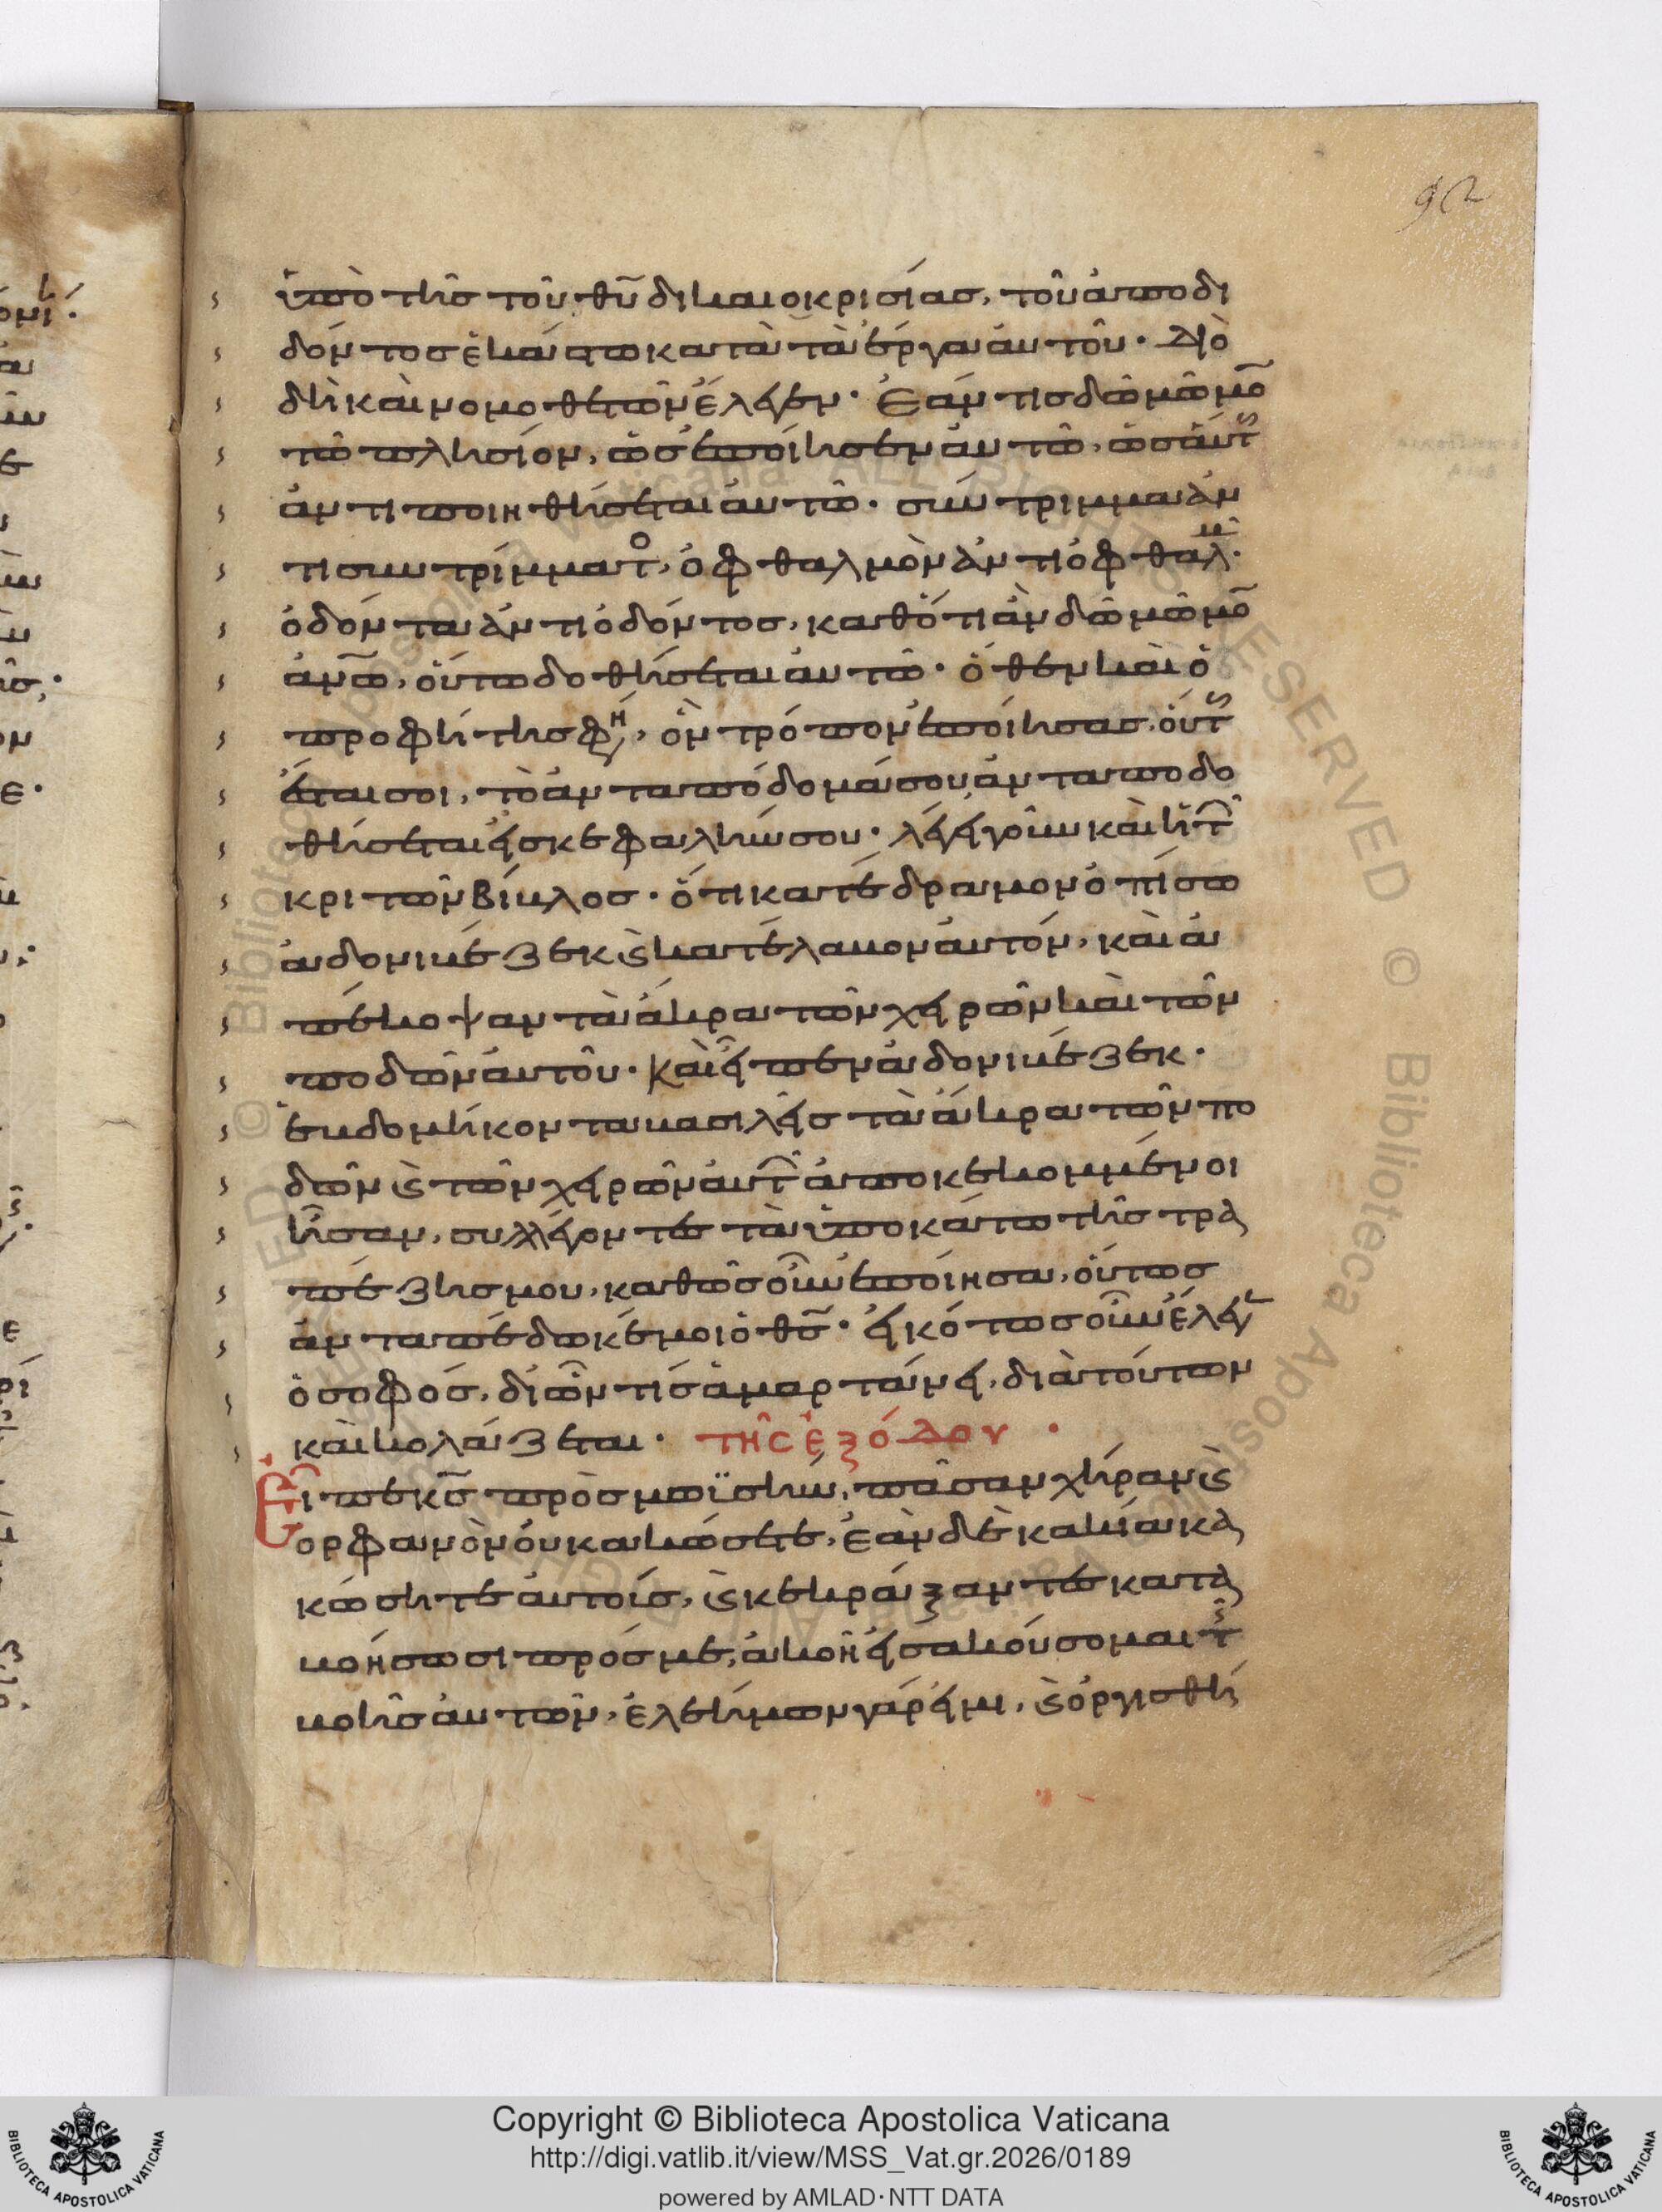 92
ὑπὸ τῆς τοῦ θῦ δικαιοκρισίας, τοῦ ἀποδι
δόντος ἑκάστω κατὰ τὰ ἔργα αὐτοῦ· Διὸ
δὴ καὶ νομοθετῶν ἔλεγεν· Ἐάν τις δῶ μῶμο
τῶ πλησίον, ὡς ἐποίησεν αὐτῶ, ὡσαύτ
ἀντιποιηθήσεται αὐτῶ· σύντριμμα ἀν
τι συντρίμματο, ὀφθαλμὸν ἀντι ὀφθαλμ·
ὀδόντα ἀντι ὀδόντος, καθότι ἂν δῶ μῶμο
ἀνω, οὕτω δοθήσεται αὐτῶ· ὅθεν καὶ ὁ
προφήτης φη, ὃν τρόπον ἐποίησας, οὕτ
ἔται σοι, τὸ ἀνταπόδομά σου ἀνταποδο
θήσεται εἰς κεφαλήν σου· λέγει γοῦν καὶ ἡ τ
κριτῶν βίβλος· ὅτι κατέδραμον ὀπίσω
ἀδονιβέζεκ κατέλαβον αὐτόν, καὶ ἀ
πέκοψαν τὰ ἄκρα τῶν χειρῶν καὶ τῶν
ποδῶν αὐτοῦ· καὶ εἶπεν ἀδονιβέζεκ·
ἑβδομήκοντα βασιλεῖς τὰ ἄκρα τῶν πο
δῶν ϗ τῶν χειρῶν αὐτ ἀποκεκομμένοι
ἦσαν, συλλέγοντες τὰ ὑποκάτω τῆς τρα
πέζης μου, καθὼς οὖν ἐποίησα, οὕτως
ἀνταπέδωκέ μοι ὁ θς· εἰκότως οὖν ἔλεγ
ὁ σοφός, δι ὧν τις ἁμαρτάνει, διὰ τούτων
καὶ κολάζεται· τῆς ἐξόδου ·
Εἶπε κς πρὸς μωϋσῆν, πᾶσαν χήραν ϗ
ὀρφανὸν οὐ κακώσετε, ἐὰν δὲ κακία κα
κώσητε αὐτοὺς, ϗ κεκράξαντες κατα
βοήσωσι πρός με, ἀκοῇ εἰσακούσομαι τ
βοῆς αὐτῶν, ἐλεήμων γάρ εἰμι, ϗ ὀργισθή
Copyright © Biblioteca Apostolica Vaticana
http://digi.vatlib.it/view/MSS_Vat.gr.2026/0189
powered by AMLAD·NTT DATA
BIBLIOTECA APOSTOLICA VATICANA
BIBLIOTECA APOSTOLICA VATICANA